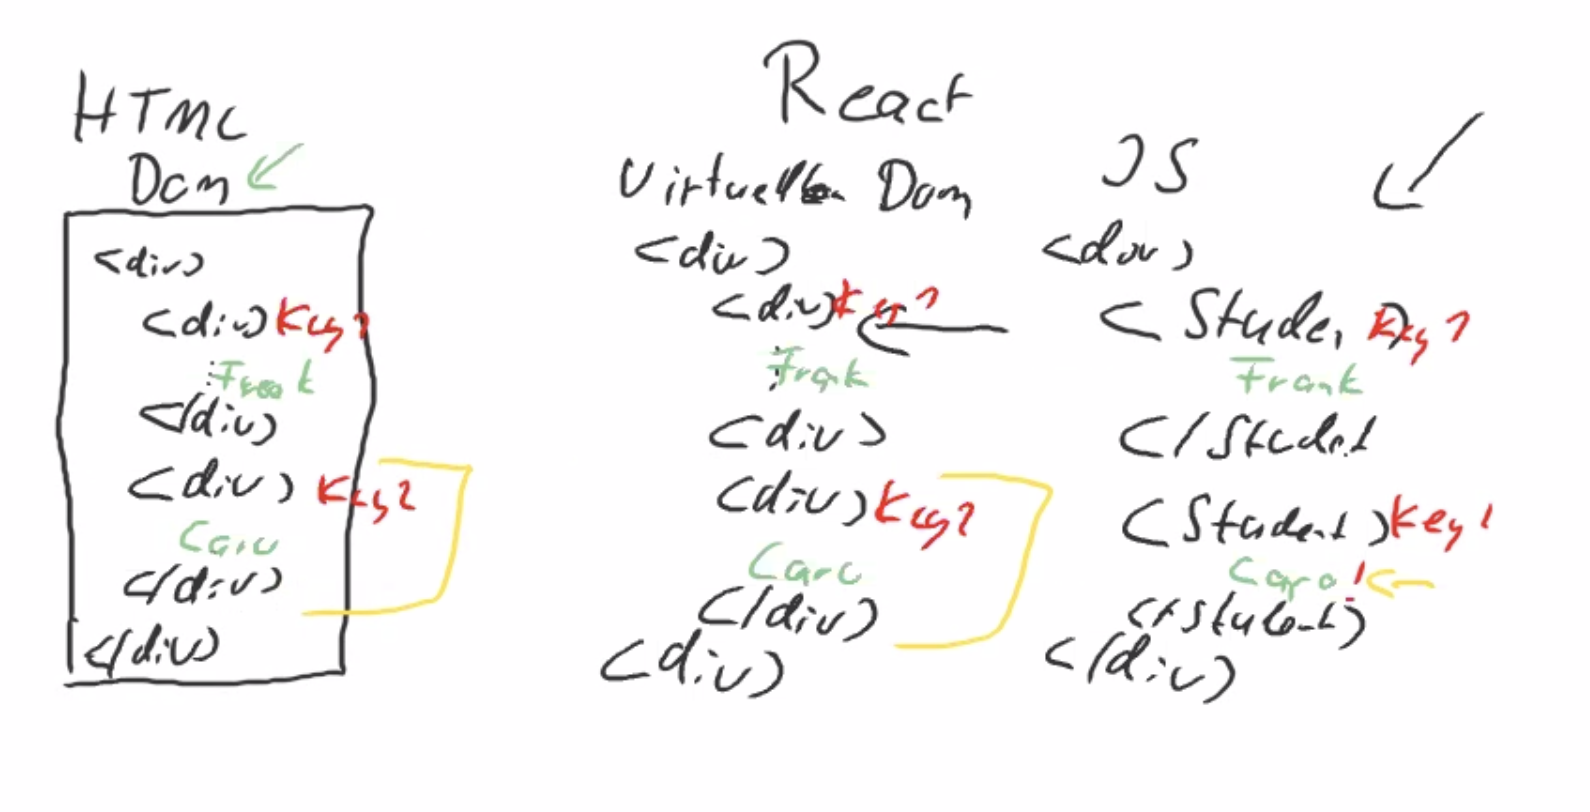 HTML
Dom
<div>
<div> Key 1
Frank
</div>
<div> Key 2
Caro
</div>
</div>
React
Virtuellen Dom
<div>
<div> Key 1
Frank
<div>
<div> Key 2
Caro
</div>
<div>
JS
<div>
< Key 1
Frank
</Student
<Student> Key 1
Caro!
</Student>
</div>